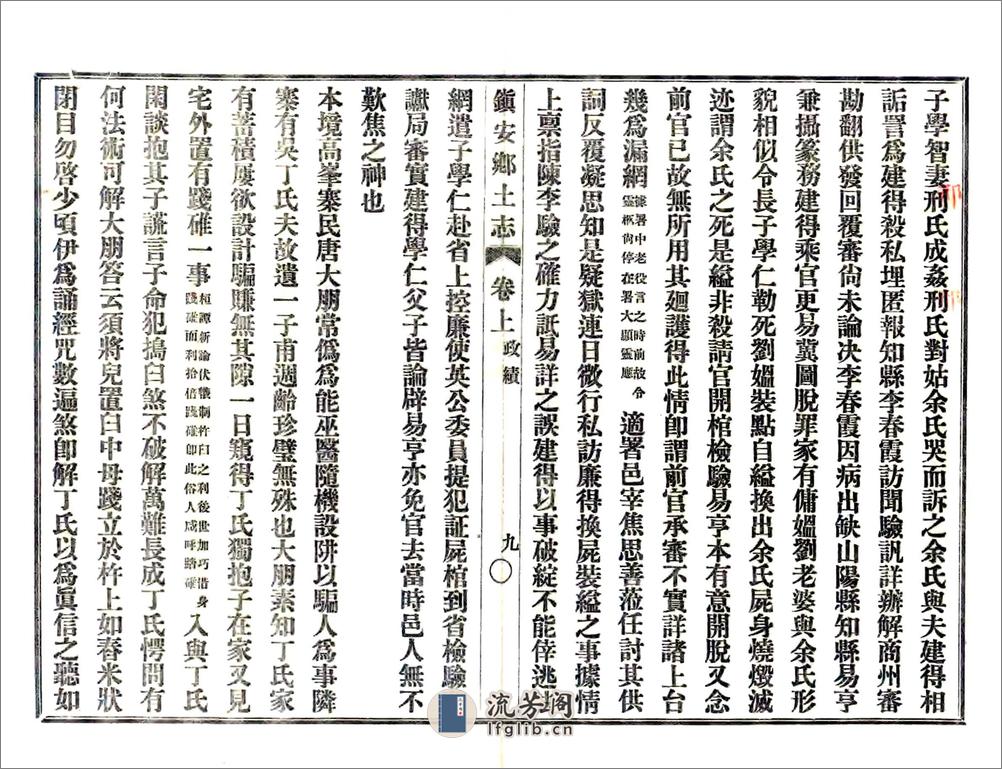 子學智妻刑氏成姦刑氏對姑余氏哭而訴之余氏與夫建得相
詬詈爲建得殺私埋匿報知縣李春霞訪聞驗訊詳辦解商州審
勘翻供發回覆審尚未論决李春霞因病出缺山陽縣知縣易亨
兼攝篆務建得乘官更易冀圖脫罪家有傭媼劉老婆與余氏形
貌相似令長子學仁勒死劉媼裝點自縊換出余氏屍身燒燬滅
迹謂余氏之死是縊非殺請官開棺檢驗易亨本有意開脫又念
前官已故無所用其迴護得此情卽謂前官承審不實詳諸上台
幾爲漏網據署中老役言之時前故令靈柩尚停在署大顯靈應適署邑宰焦思善蒞任討其供
詞反覆凝思知是疑獄連日微行私訪廉得換屍裝縊之事據情
上稟指陳李驗之確力詆易詳之誤建得以事破綻不能倖逃法
鎭安鄉土志 卷上 政績 九
網遣子學仁赴省上控廉使英公委員提犯証屍棺到省檢驗
讞局審實建得學仁父子皆論辟易亨亦免官去當時邑人無不
歎焦之神也
本境高峯寨民唐大朋常僞爲能巫醫隨機設阱以騙人爲事隣
寨有吳丁氏夫故遺一子甫週齡珍璧無殊也大朋素知丁氏家
有蓄積屢欲設計騙賺無其隙一日窺得丁氏獨抱子在家又見
宅外置有踐碓一事桓譚新論伏犧制杵臼之利後世加巧借身踐碓而利拾倍踐碓卽此俗人咸呼踏碓入與丁氏
閑談抱其子謊言子命犯搗臼煞不破解萬難長成丁氏愕問有
何法術可解大朋答云須將兒置臼中母踐立於杵上如舂米狀
閉目勿啓少頃伊爲誦經咒數遍煞卽解丁氏以爲眞信之聽如
流芳閣
lfglib.cn